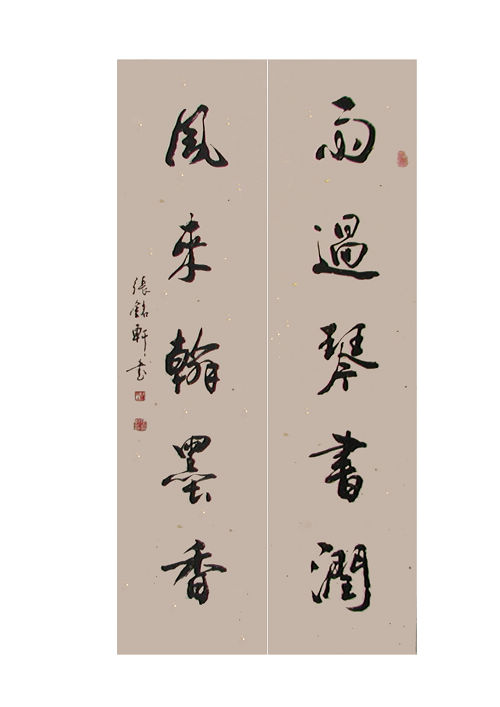 雨過琴書潤
風来翰墨香
張銘軒书